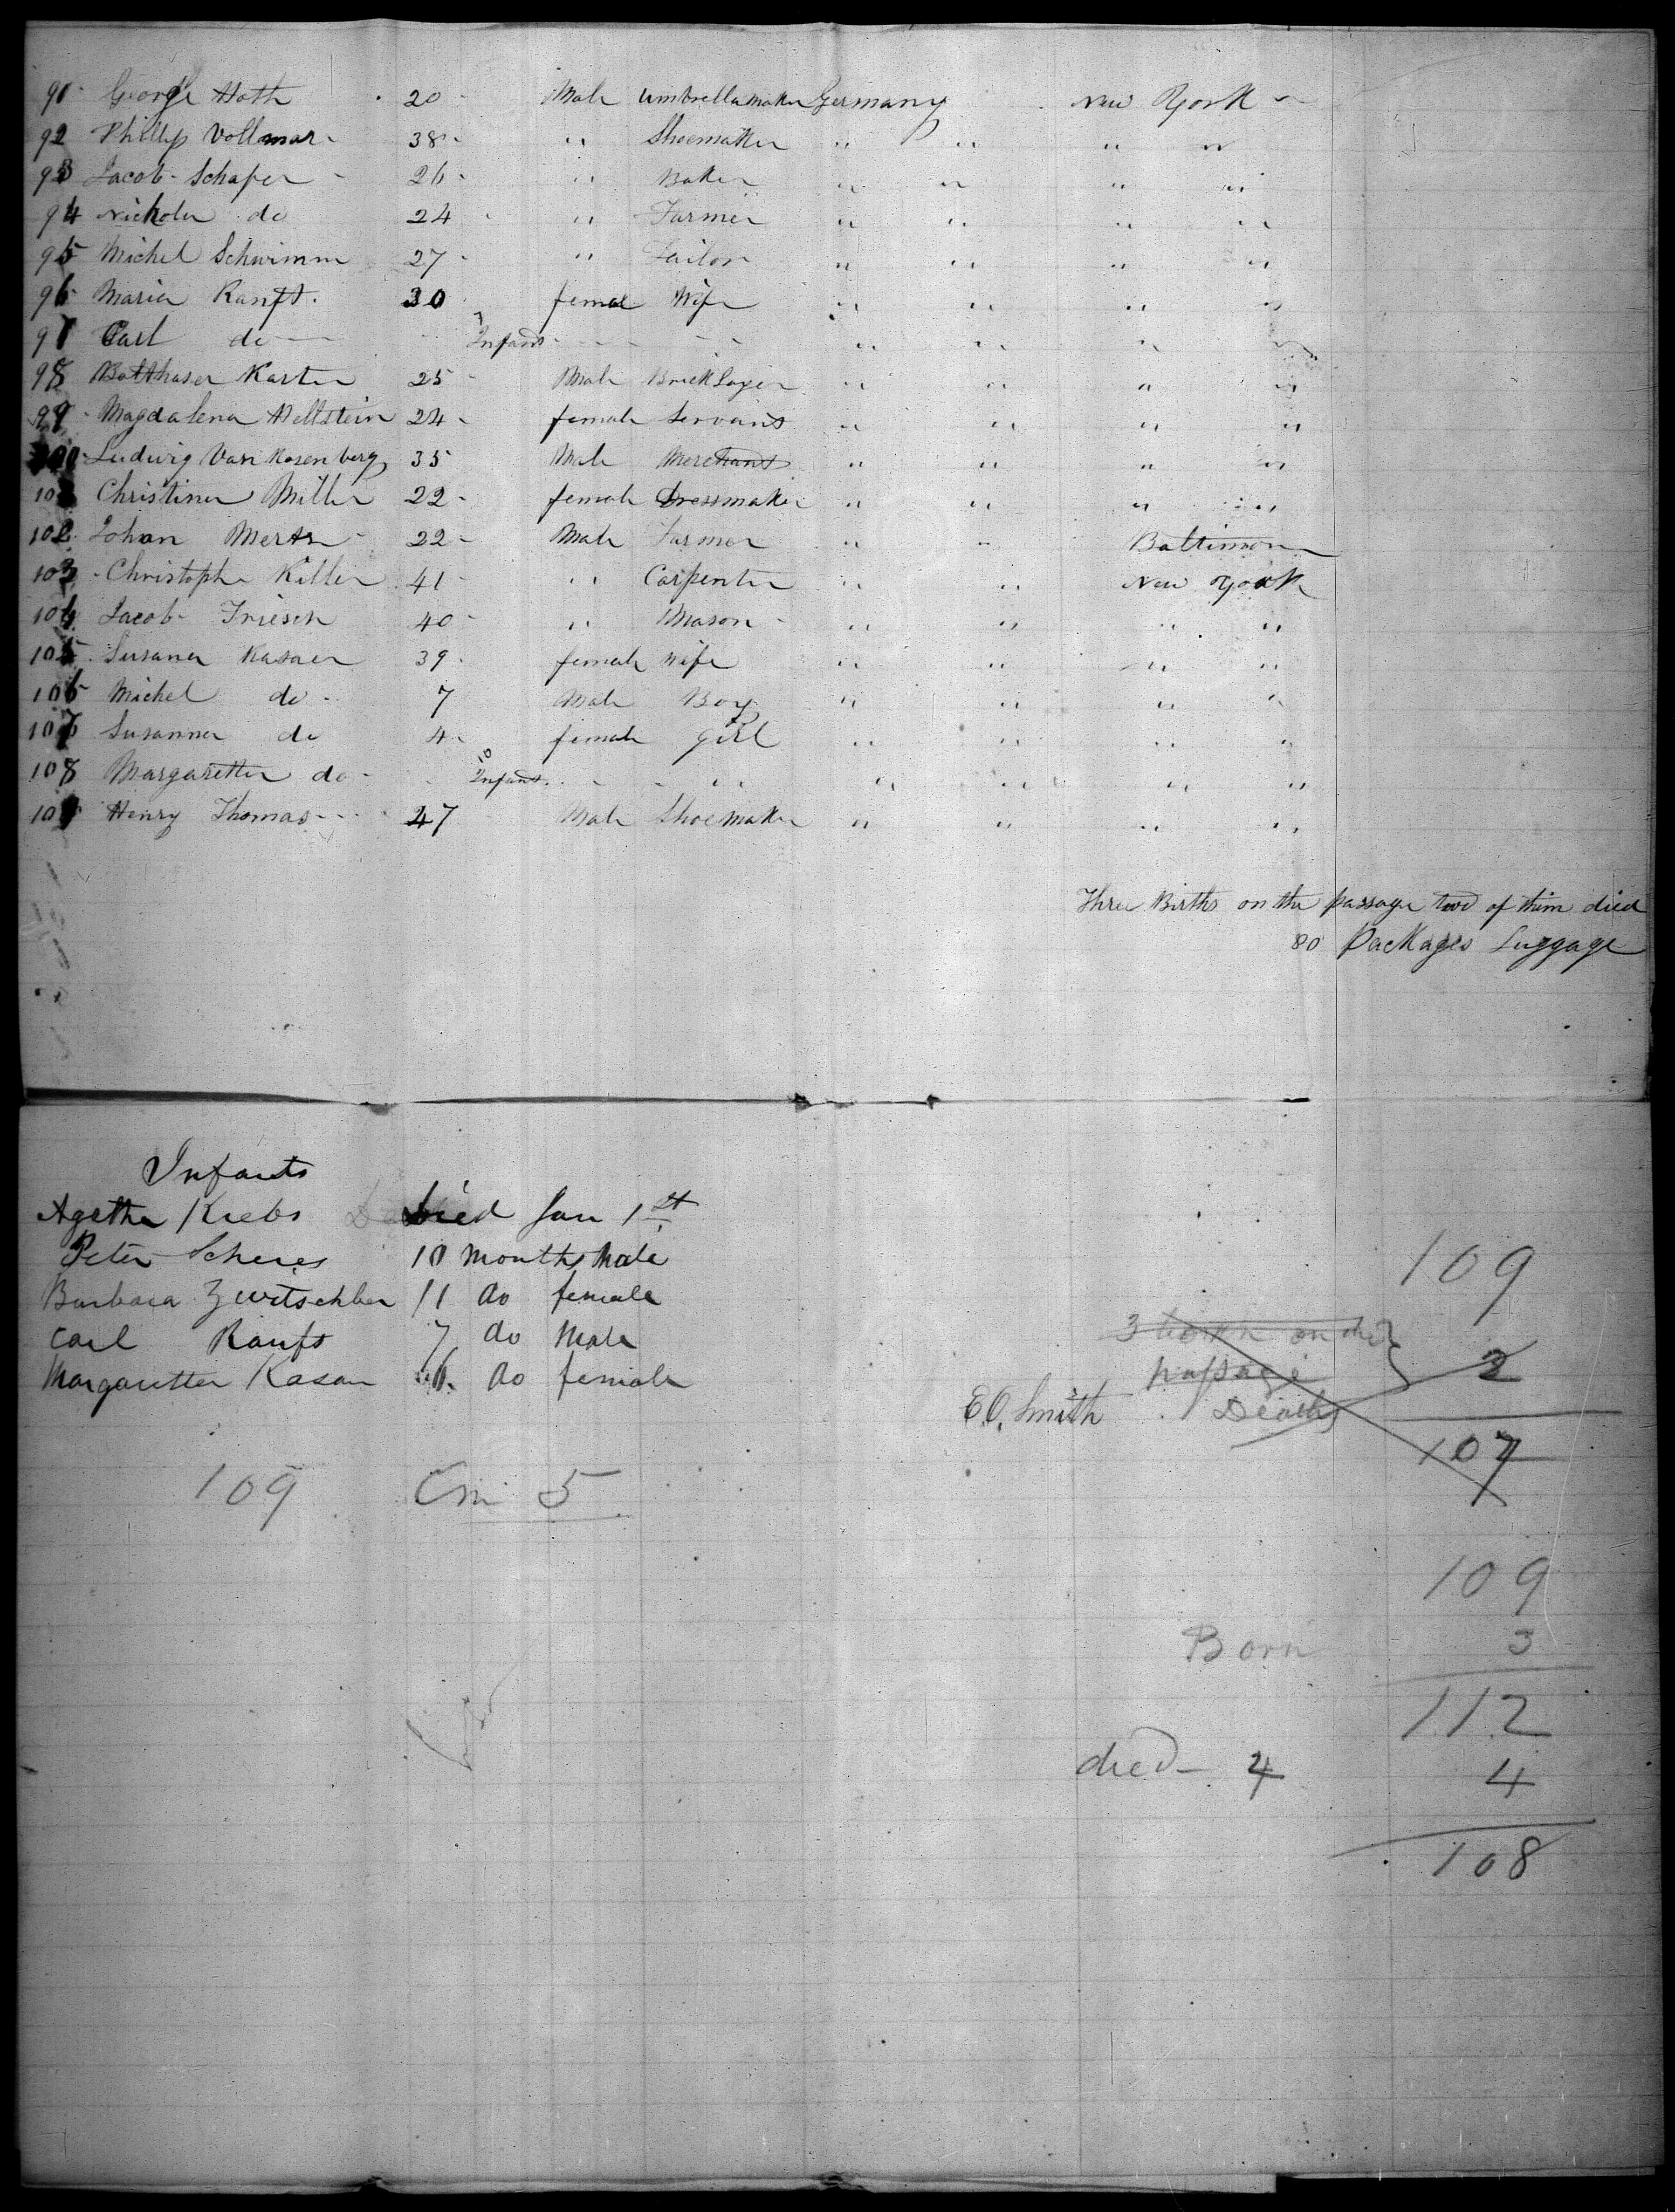 91 George Hoth 20 Male Umbrellamaker Germany New York
92 Phillip Vollmar 38 " Shoemaker " " " "
93 Jacob Schafer 26 " Baker " " " "
94 Nicholer do 24 " Farmer " " " "
95 Michel Schwimm 27 " Tailor " " " "
96 Maria Ranft 30 female Wife " " " "
97 Carl do Infant " " " " "
98 Balthaser Karter 25 Male Bricklayer " " " "
99 Magdalena Hellstein 24 female Servant " " " "
100 Ludwig Van Rosenberg 35 Male Merchant " " " "
101 Christiner Miller 22 female Dressmaker " " " "
102 Johan Mertz 22 Male Farmer " " Baltimore
103 Christophe Killer 41 " Carpenter " " New York
104 Jacob Friesch 40 " Mason " " " "
105 Susaner Kasaer 39 female Wife " " " "
106 Michel do 7 Male Boy " " " "
107 Susanner do 4 female girl " " " "
108 Margaretter do Infant " " " " "
109 Henry Thomas 47 Male Shoemaker " " " "
Three Births on the passage two of them died
80 Packages Luggage
Infants
Agetha Krebs Died Jan 1st
Peter Scheres 10 months Male
Barbara 11 do female
Carl Ranft 7 do Male
Margaretter Kasaer do female
109
3 born on the passage 2
E.O. Smith Deaths
107
109 5
109
Born 3
112
died 4 4
108